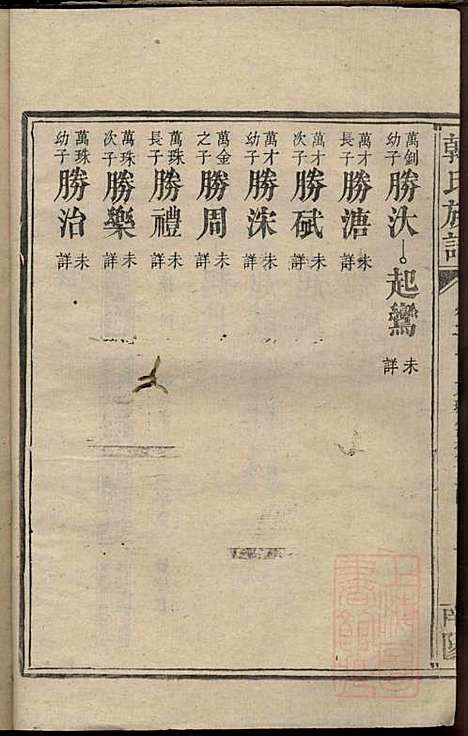 韓氏族譜
萬釗幼子 勝汰 起鸞 未詳
萬才長子 勝溏 未詳
萬才次子 勝斌 未詳
萬才幼子 勝洣 未詳
萬金之子 勝周 未詳
萬珠長子 勝禮 未詳
萬珠次子 勝樂 未詳
萬珠幼子 勝治 未詳
南陽